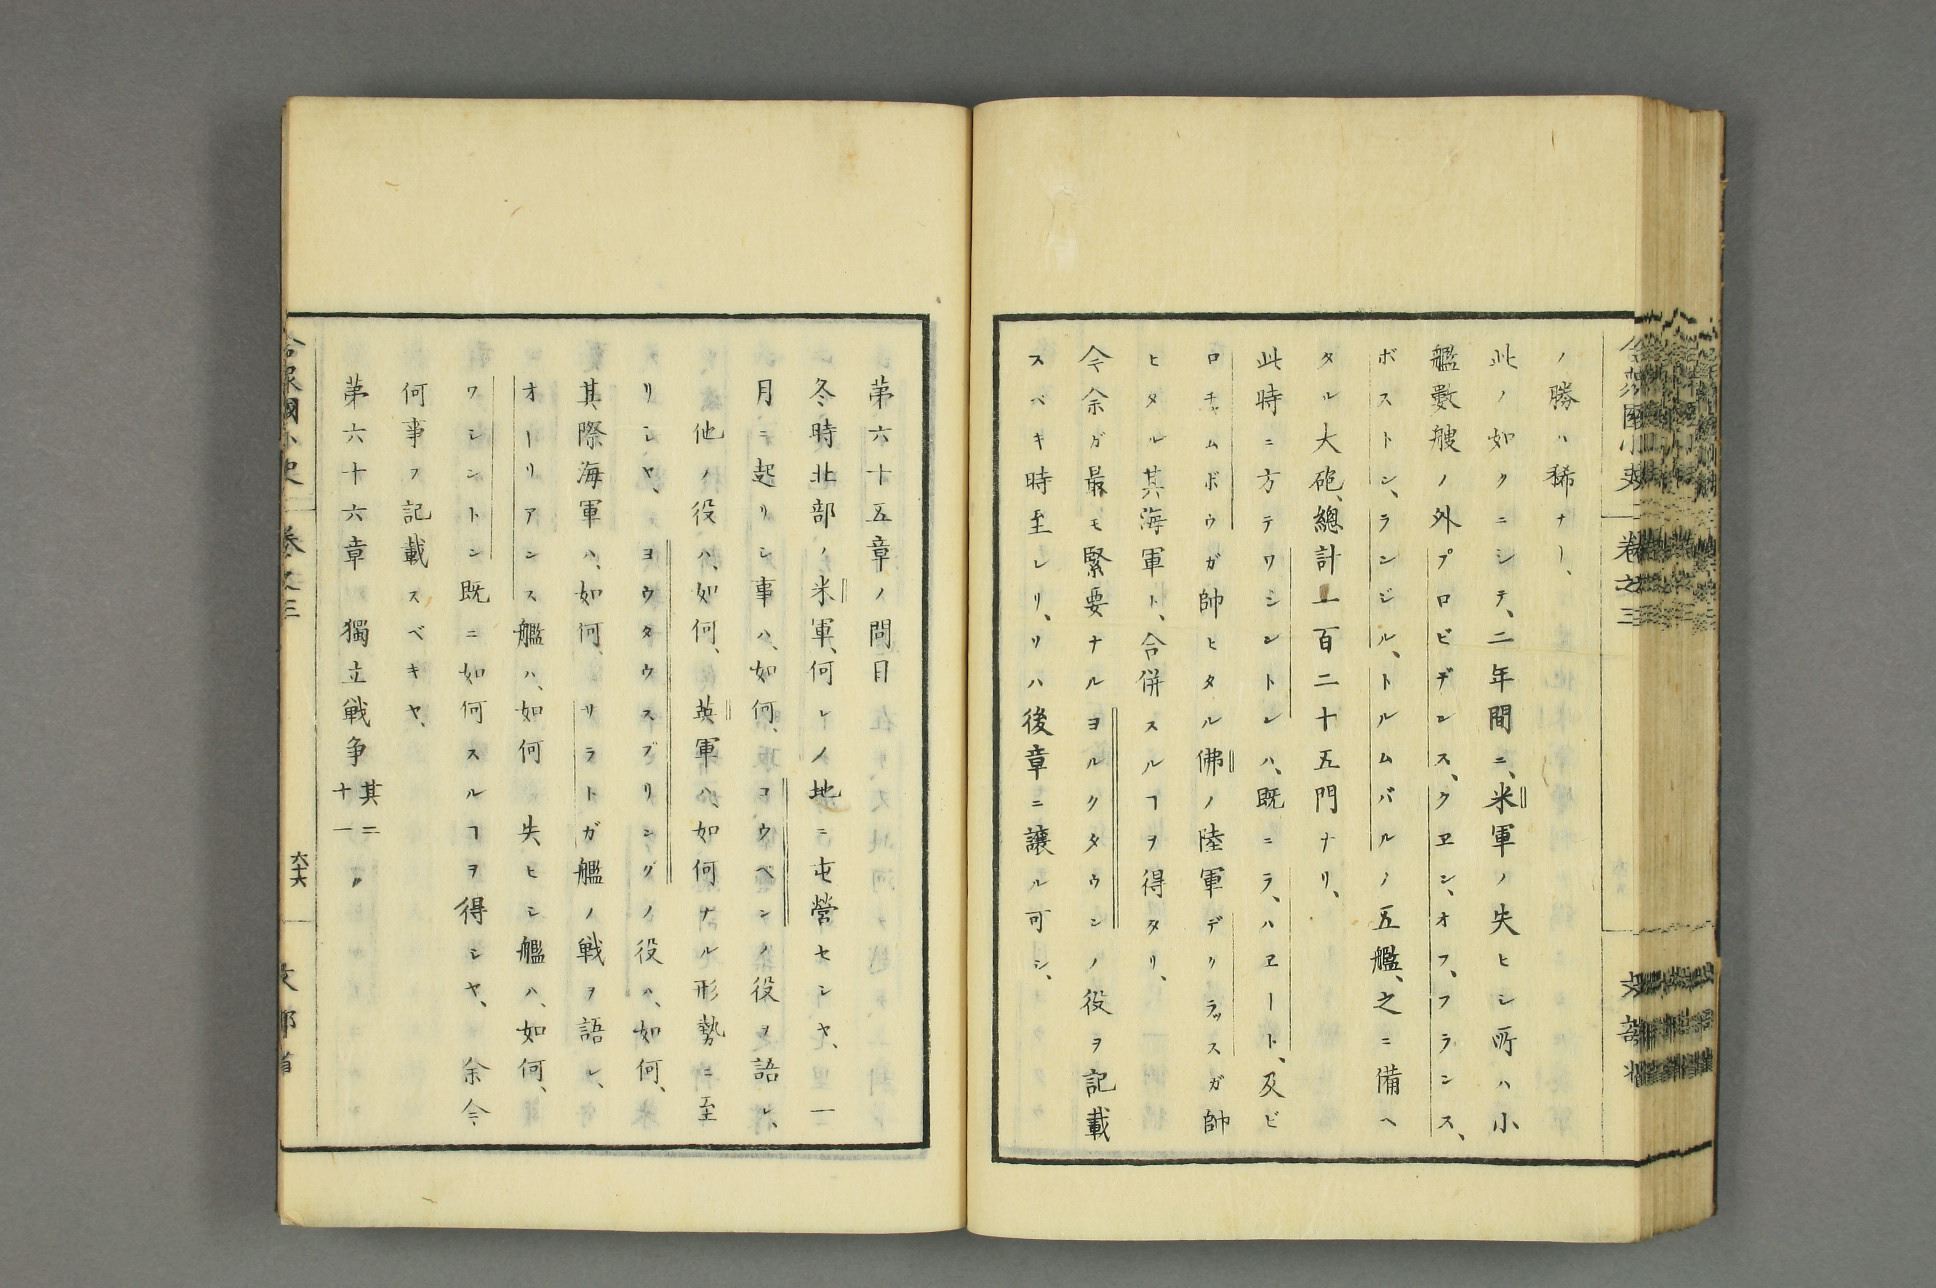 ノ勝ハ稀ナリ、
此ノ如クニシテ、二年間ニ、米軍ノ失ヒシ所ハ小
艦數艘ノ外プロビデンス、クヱン、オフ、フランス、
ボストン、ランジル、トルムバルノ五艦、之ニ備ヘ
タル大砲、總計一百二十五門ナリ、
此時ニ方テワシントンハ、既ニラ、ハヱート、及ビ
ロチャムボウガ帥ヒタル佛ノ陸軍デリラッスガ帥
ヒタル其海軍ト、合併スルヿヲ得タリ、
今余ガ最モ緊要ナルヨルクタウンノ役ヲ記載
スベキ時至レリ、リハ後章ニ讓ル可シ、
合衆國小史 卷之三 文部省
第六十五章ノ問目
冬時北部ノ米軍、何レノ地ニ屯營セシヤ、一
月ニ起リシ事ハ、如何、コウペンノ役ヲ語レ、
他ノ役ハ、如何、英軍ハ、如何ナル形勢ニ至
リシヤ、ヨウタウスプリングノ役ハ、如何、
其際海軍ハ、如何、サラトガ艦ノ戰ヲ語レ、
オーリアンス艦ハ、如何、失ヒシ艦ハ、如何、
ワシントン既ニ如何スルヿヲ得シヤ、余今
何事ヲ記載スベキヤ、
第六十六章 獨立戰争 其二十一
合衆國小史 卷之三 六十六 文部省